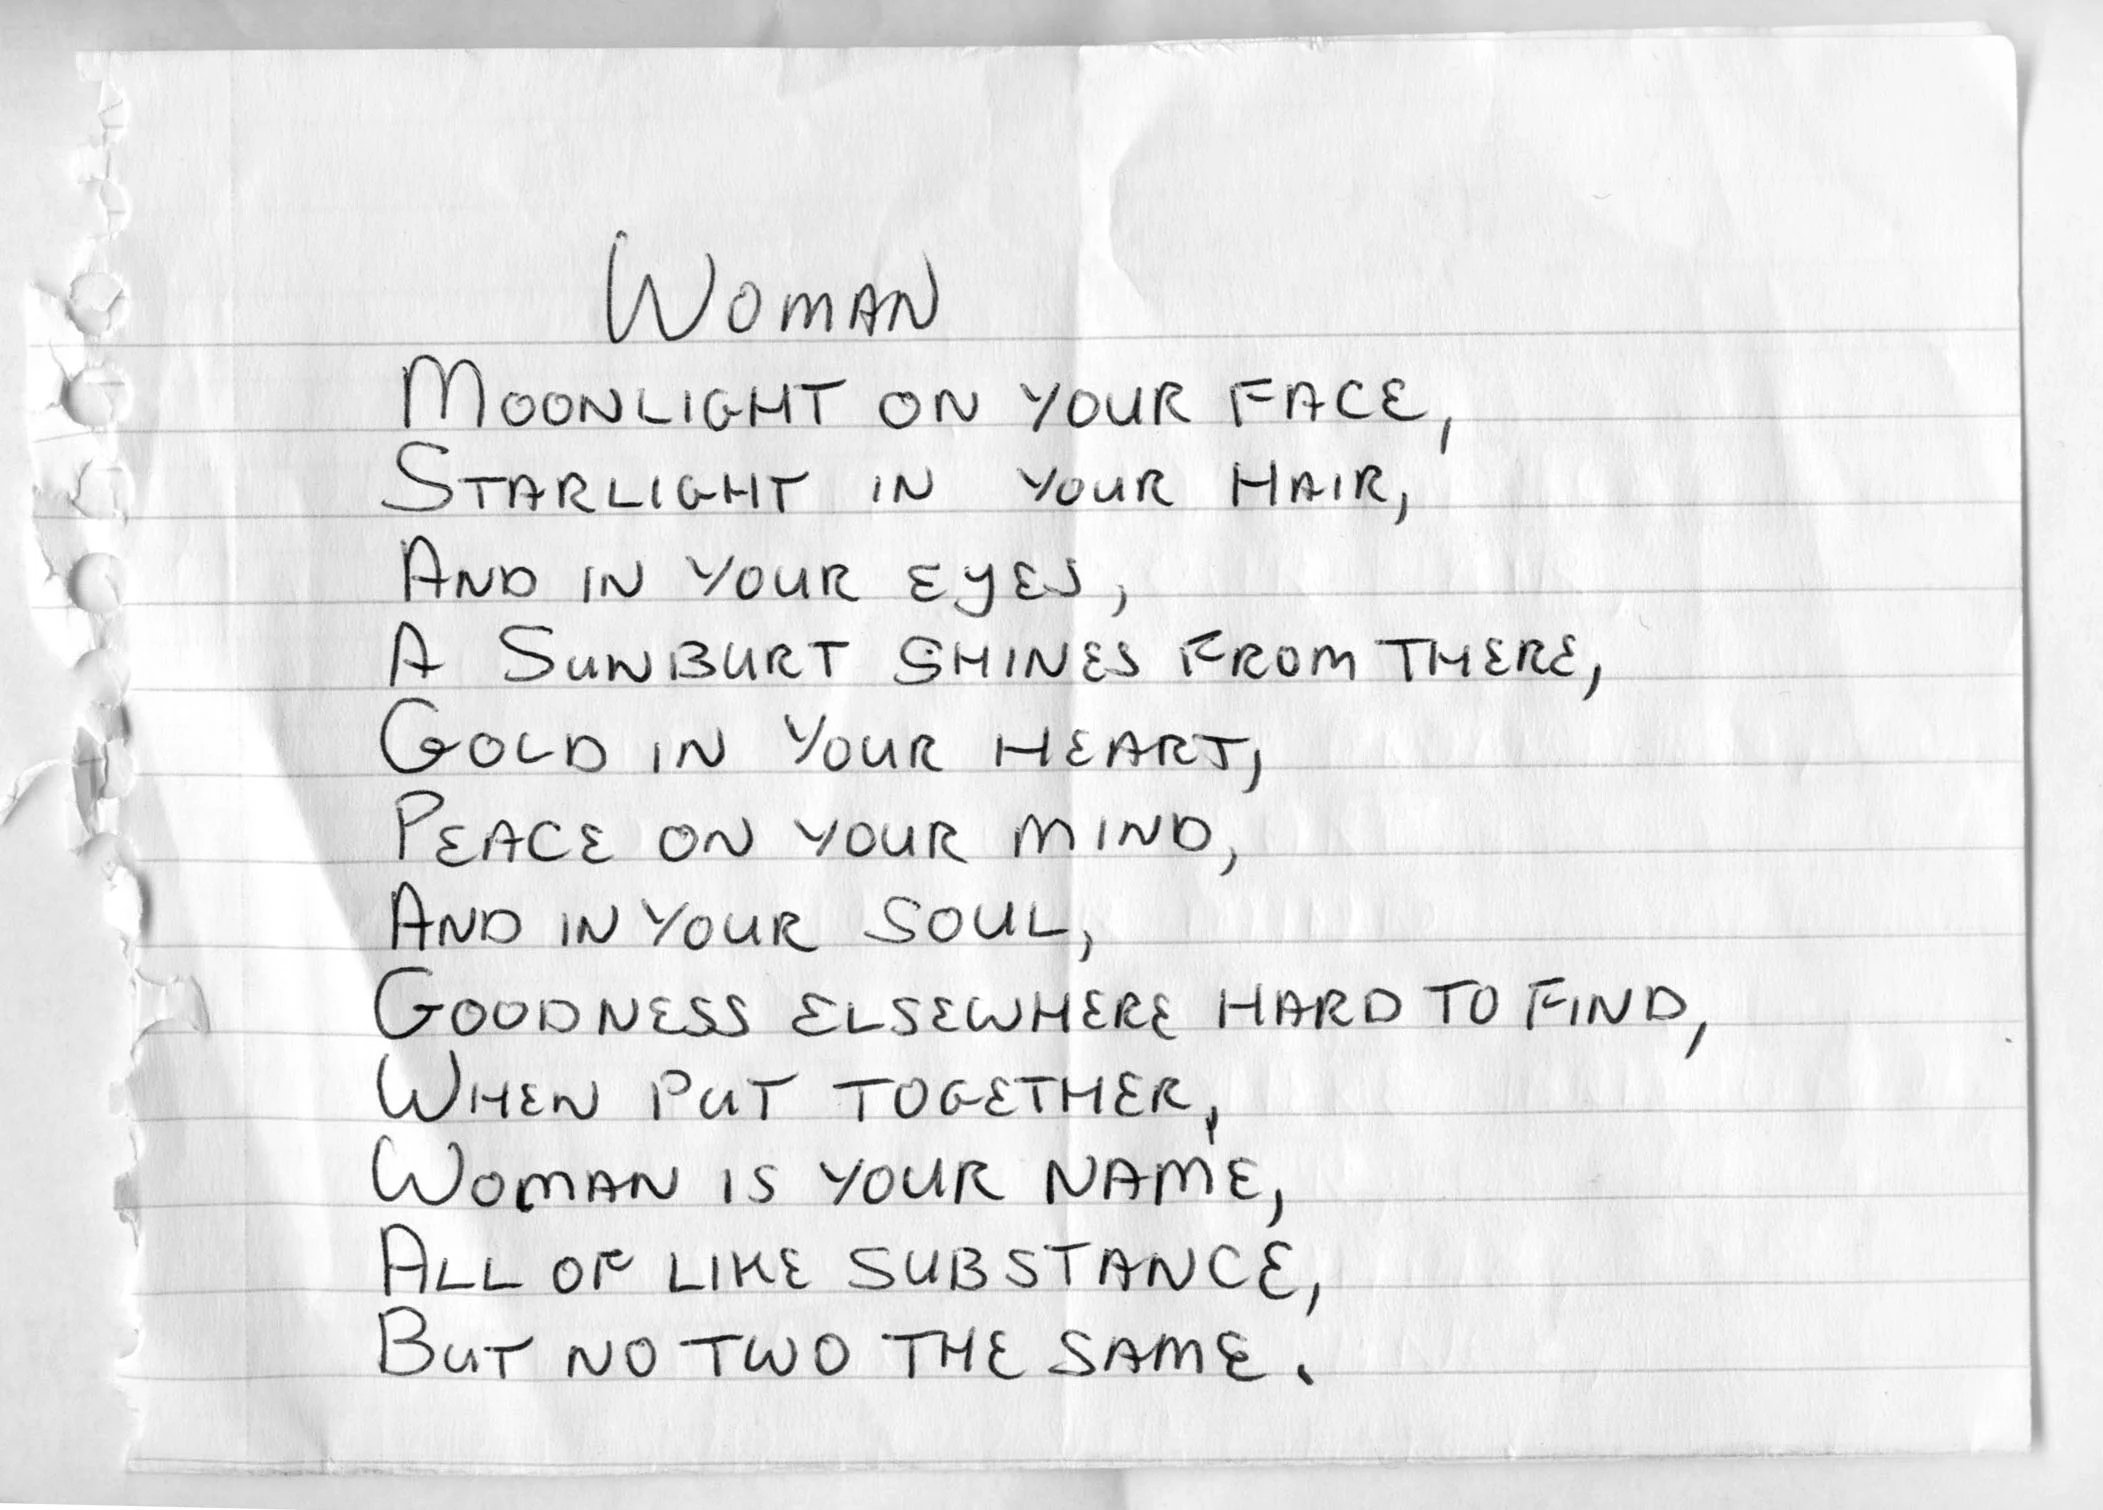 WOMAN
MOONLIGHT ON YOUR FACE,
STARLIGHT IN YOUR HAIR,
AND IN YOUR EYES,
A SUNBURT SHINES FROM THERE,
GOLD IN YOUR HEART,
PEACE ON YOUR MIND,
AND IN YOUR SOUL,
GOODNESS ELSEWHERE HARD TO FIND,
WHEN PUT TOGETHER,
WOMAN IS YOUR NAME,
ALL OF LIKE SUBSTANCE,
BUT NO TWO THE SAME.